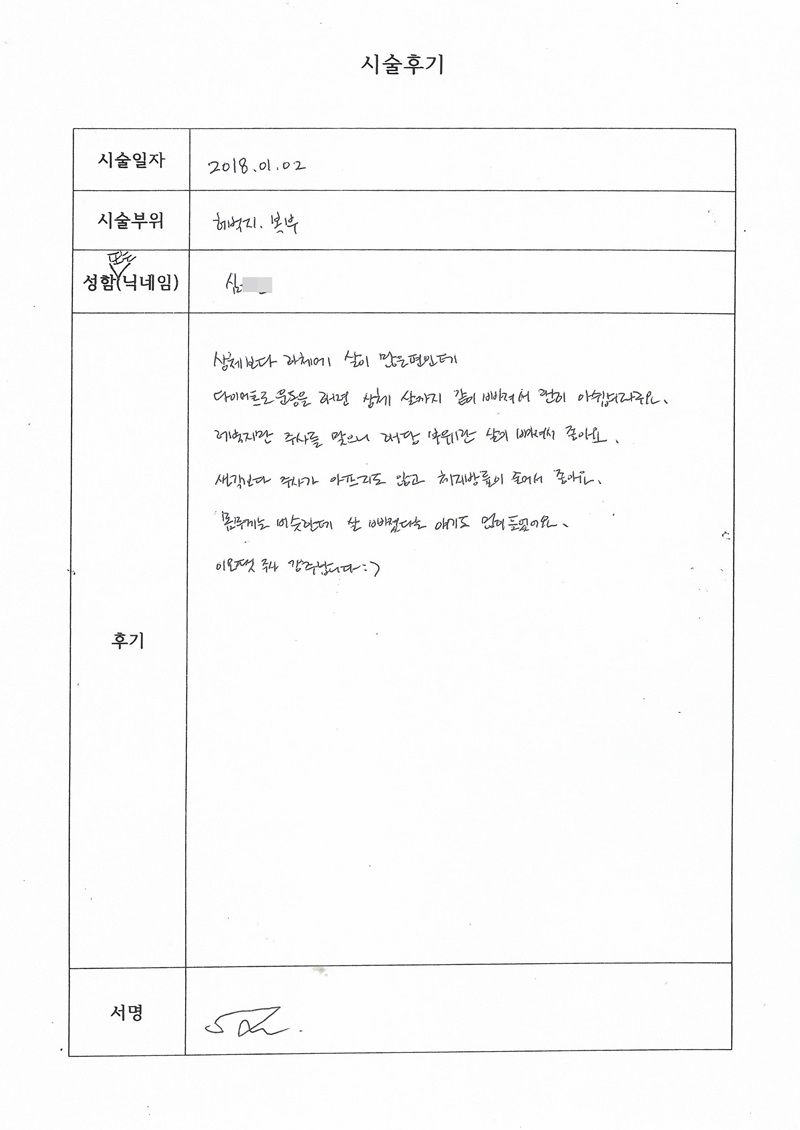 시술후기
시술일자 2018.01.02
시술부위 허벅지.복부
또는
성함(닉네임) 심
상체보다 하체에 살이 많은편인데
다이어트로 운동을 하면 상체 살까지 같이 빠져서 아쉽더라구요.
허벅지만 주사를 맞으니 해당 부위만 살이 빠져서 좋아요.
생각보다 주사가 아프지도 않고 허벅지가 줄어서 좋아요.
몸무게는 비슷한데 살 빠졌다는 얘기도 많이 들었어요.
주사 강추합니다 :)
후기
서명